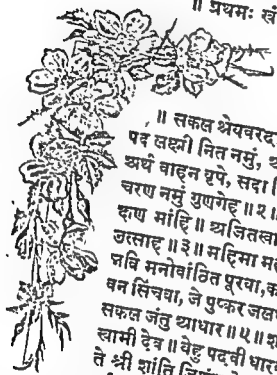 ॥ प्रथमः खं
॥ सकल श्रेयवरद
पद लक्ष्मी नित नमुं,
अर्थ वाहन वृषे, सदा
चरण नमुं गुणगेह ॥२॥
क्षण मांहि ॥ अजितला
उत्साह ॥३॥ महिमा म
नवि मनोवांछित पूरवा,
वन सिंचवा, जे पुष्कर जलध
सकल जंतु आधार ॥५॥ शा
स्वामी देव ॥ वेहु पदवी धार
ते श्री शांति